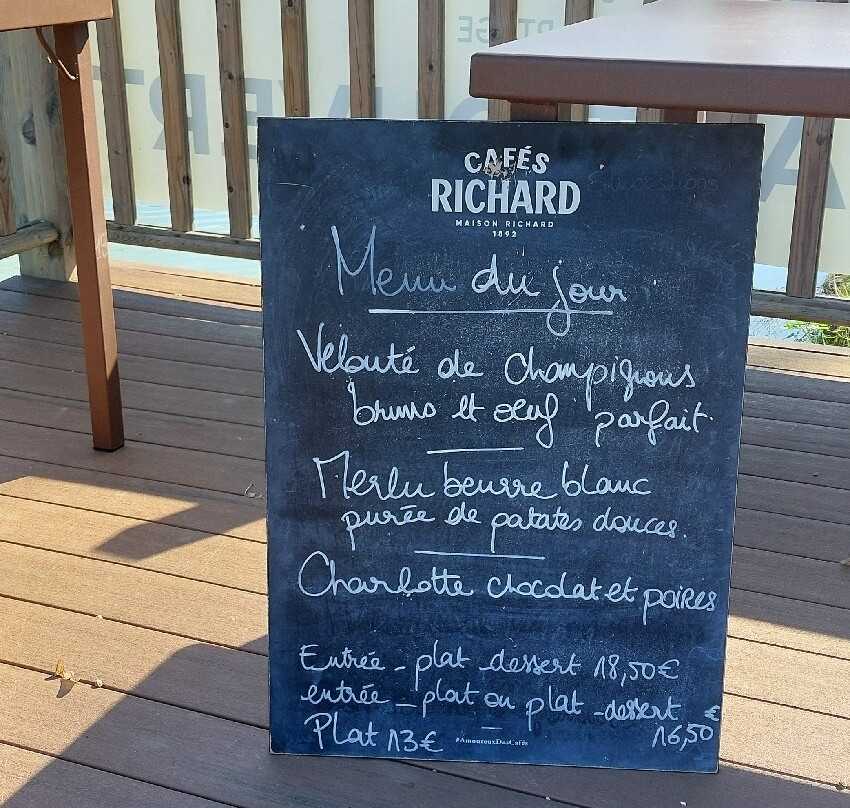 CAFÉS
RICHARD
MAISON RICHARD
1892
Menu du jour
Velouté de champignons
bruns et oeuf parfait
Merlu beurre blanc
purée de patates douces.
Charlotte chocolat et poires
Entrée - plat - dessert 18,50€
entrée - plat ou plat - dessert €
16,50
Plat 13€
#AmoureuxDesCafés